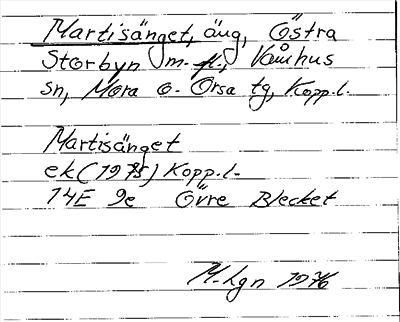 Martisänget, äng, Östra
Storbyn m. fl., Våmhus
sn, Mora o. Orsa tg, Kopp.l.
Martisänget
ek (1975) Kopp.l.
14E 9e Övre Blecket
M-lgn 1976